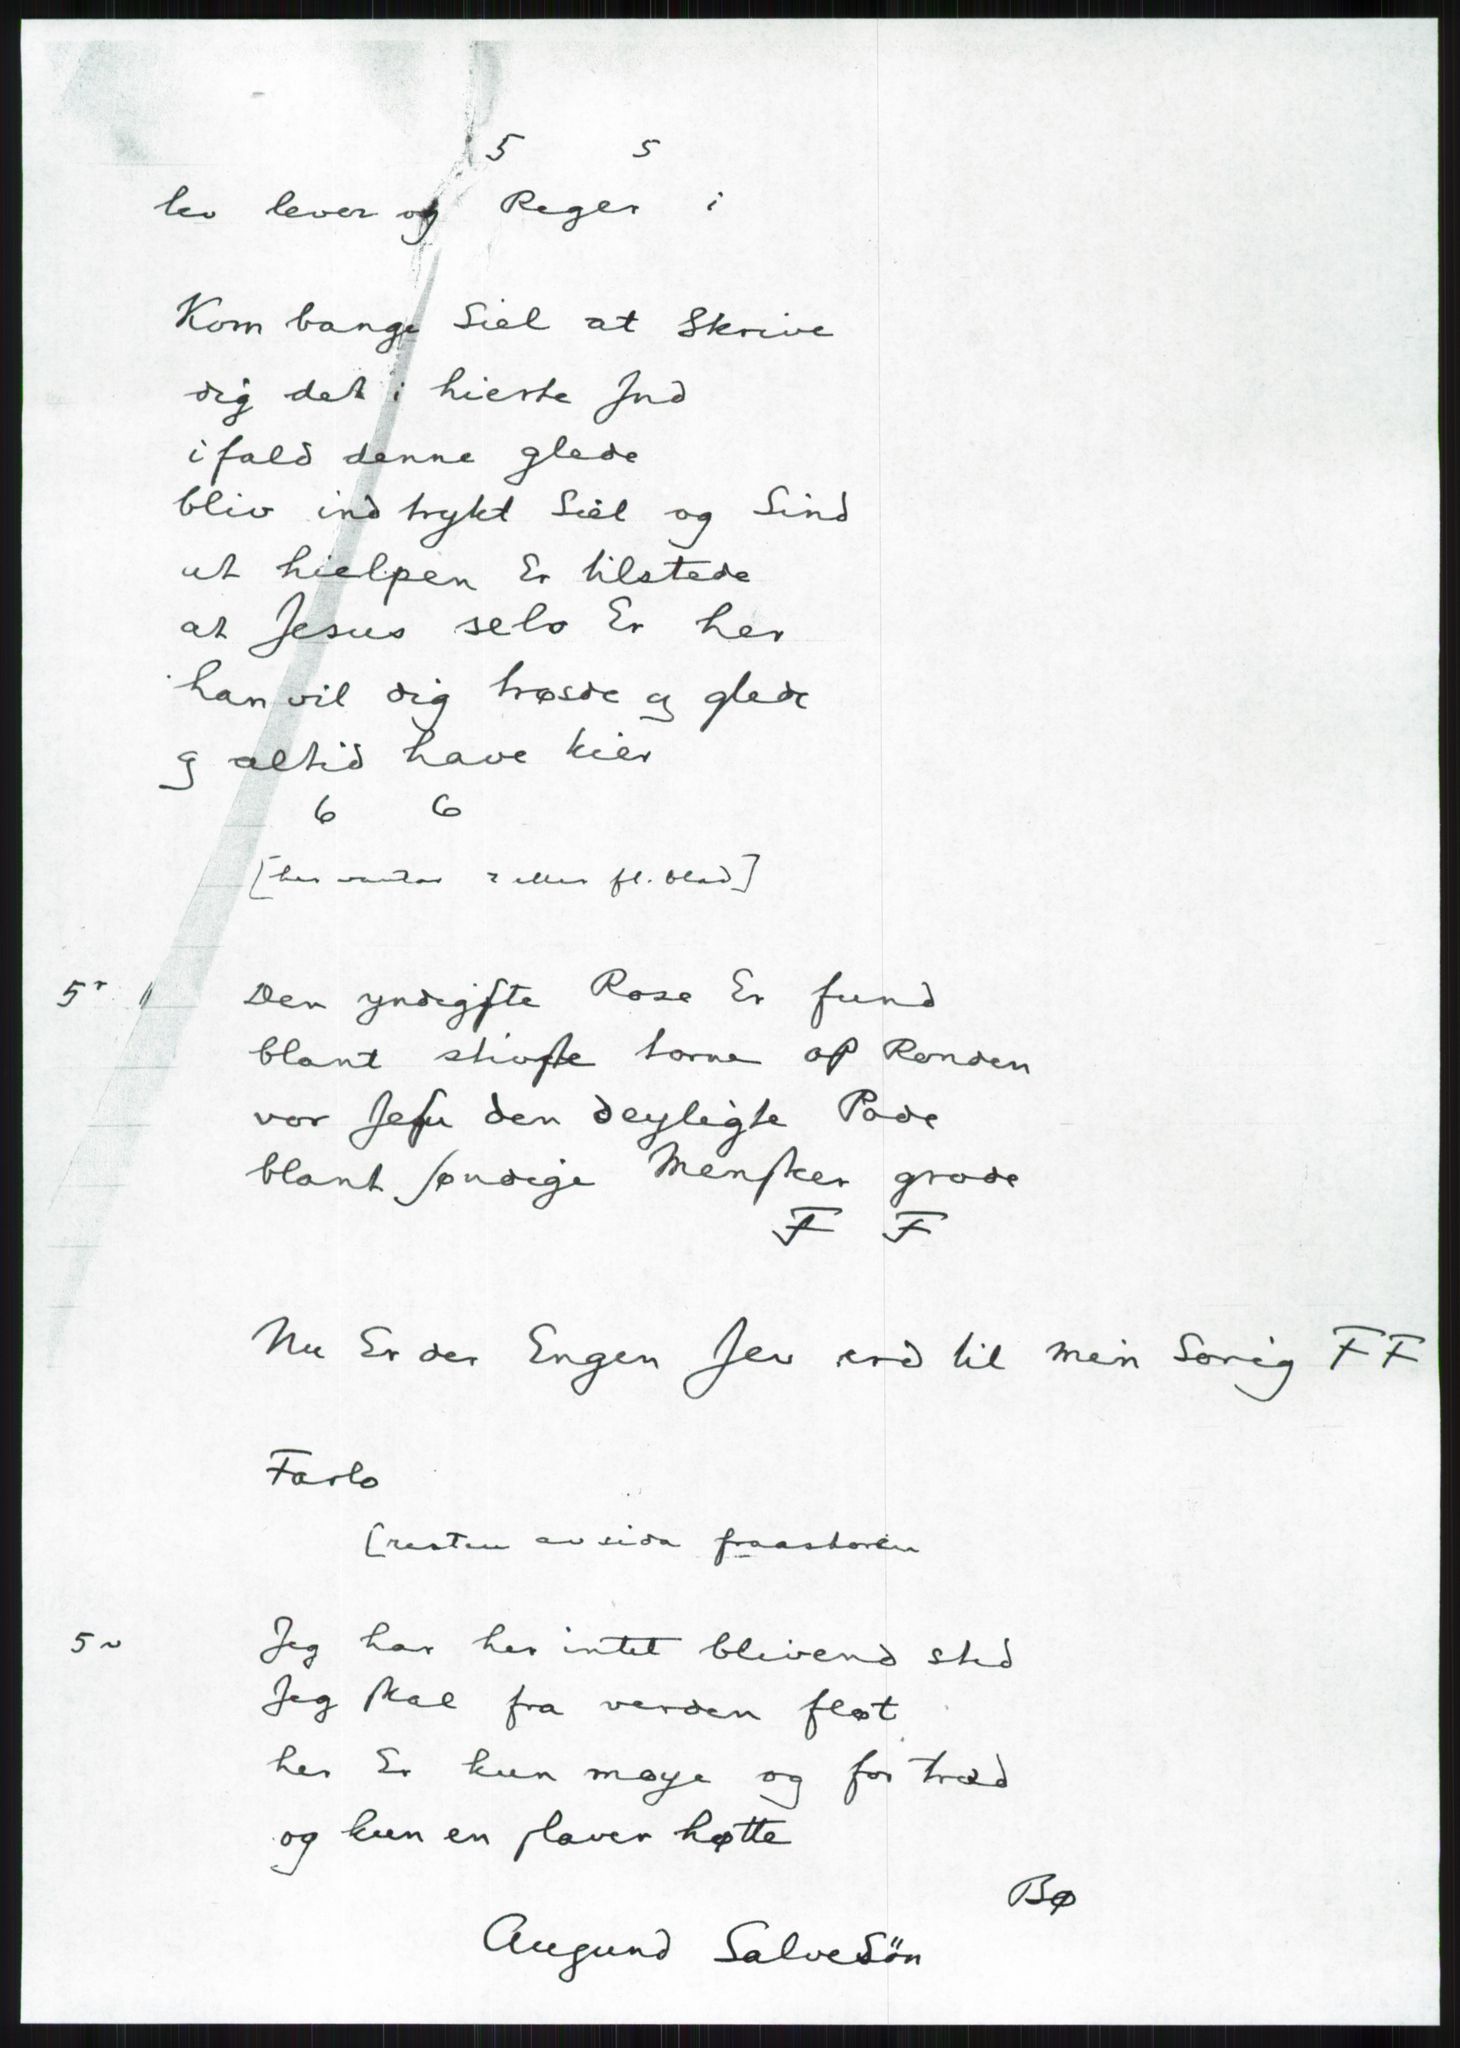 5 5
lev lever og Reger i
Kom bange Siel at Skrive
dig det i hierte Jnd
i fald denne glede
bliv ind trykt Siel og Sind
at hielpen Er tilstede
at Jesus selv Er her
han vil dig trøsde og glede
og altid have kier
6 6
[her vantar 2 eller fl. blad]
5r Den yndigſte Rose Er fund
blant stivſte torne op Randen
vor Jeſu den deyligte Pode
blant ſøndige Menſker grode
F F
Nu Er der Engen Jev erd til min Sorig F F
Farlo
[resten av sida fraaskoren
5v Jeg har her intet blivend sted
Jeg ſkal fra verden fløt
her Er kun møye og for træd
og kun en ſlaver høtte
Bø
Augund SalveSön